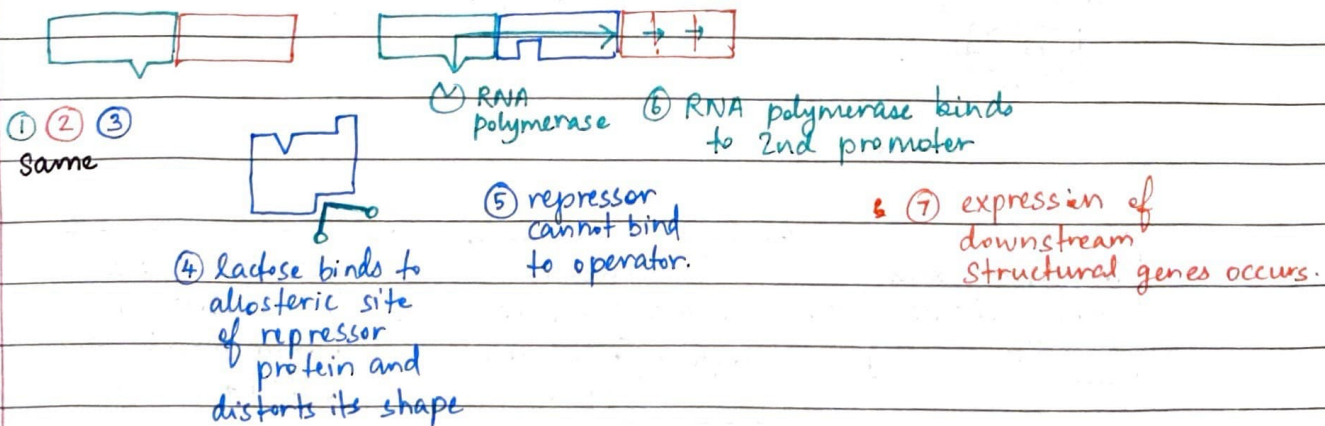 ✓ RNA
polymerase
⑥ RNA polymerase binds
to 2nd promoter
① ② ③
same
④ lactose binds to
allosteric site
of repressor
protein and
distorts its shape
⑤ repressor
cannot bind
to operator.
⑦ expression of
downstream
structural genes occurs.